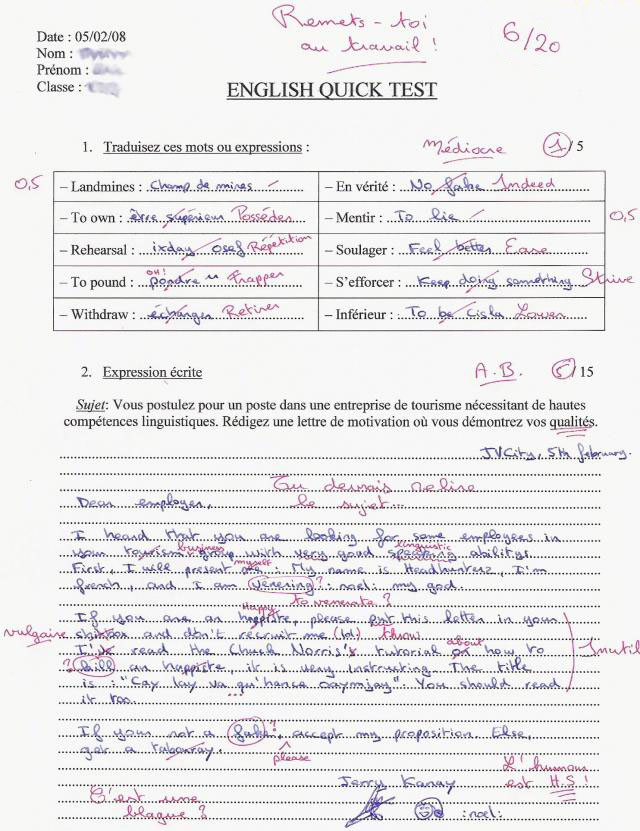 Remets-toi
au travail !
6/20
Date : 05/02/08
Nom :
Prénom :
Classe :
ENGLISH QUICK TEST
1. Traduisez ces mots ou expressions :
Médiocre
1/5
0,5
– Landmines : Champ de mines
– En vérité : No fake Indeed
– To own : être supérieur Posséder
– Mentir : To lie
0,5
– Rehearsal : ixday osef Répétition
– Soulager : Feel better Ease
– To pound : pondre Frapper
OH!
– S'efforcer : Keep doing something Strive
– Withdraw : échanger Retirer
– Inférieur : To be Cisla Lower
2. Expression écrite
A.B.
5/15
Sujet: Vous postulez pour un poste dans une entreprise de tourisme nécessitant de hautes
compétences linguistiques. Rédigez une lettre de motivation où vous démontrez vos qualités.
JVCity, 5th february.
Tu devrais relire
le sujet...
Dear employer,
I heard that you are looking for some employees in
business
linguistic
your tourism group with very good speaking abilitys.
myself
First, I will present me : My name is Headhunterz, I'm
french, and I am venering ? :noel: my god.
to venerate ?
Happy
If you are an happiste, please put this letter in your
throw
vulgaire
shitbox and don't recruit me (lol)
about
I've read the Chuck Norris's tutorial on how to
Inutil
? kill an happiste, it is very instructing. The title
is : "Cay lay va qu'hance oaymjay". You should read
it too.
...
If your not a fake ?, accept my proposition. Else,
please
get a tabouray.
L'humour
est H.S !
Jerry Kanay
:noel:
C'est une
blague ?